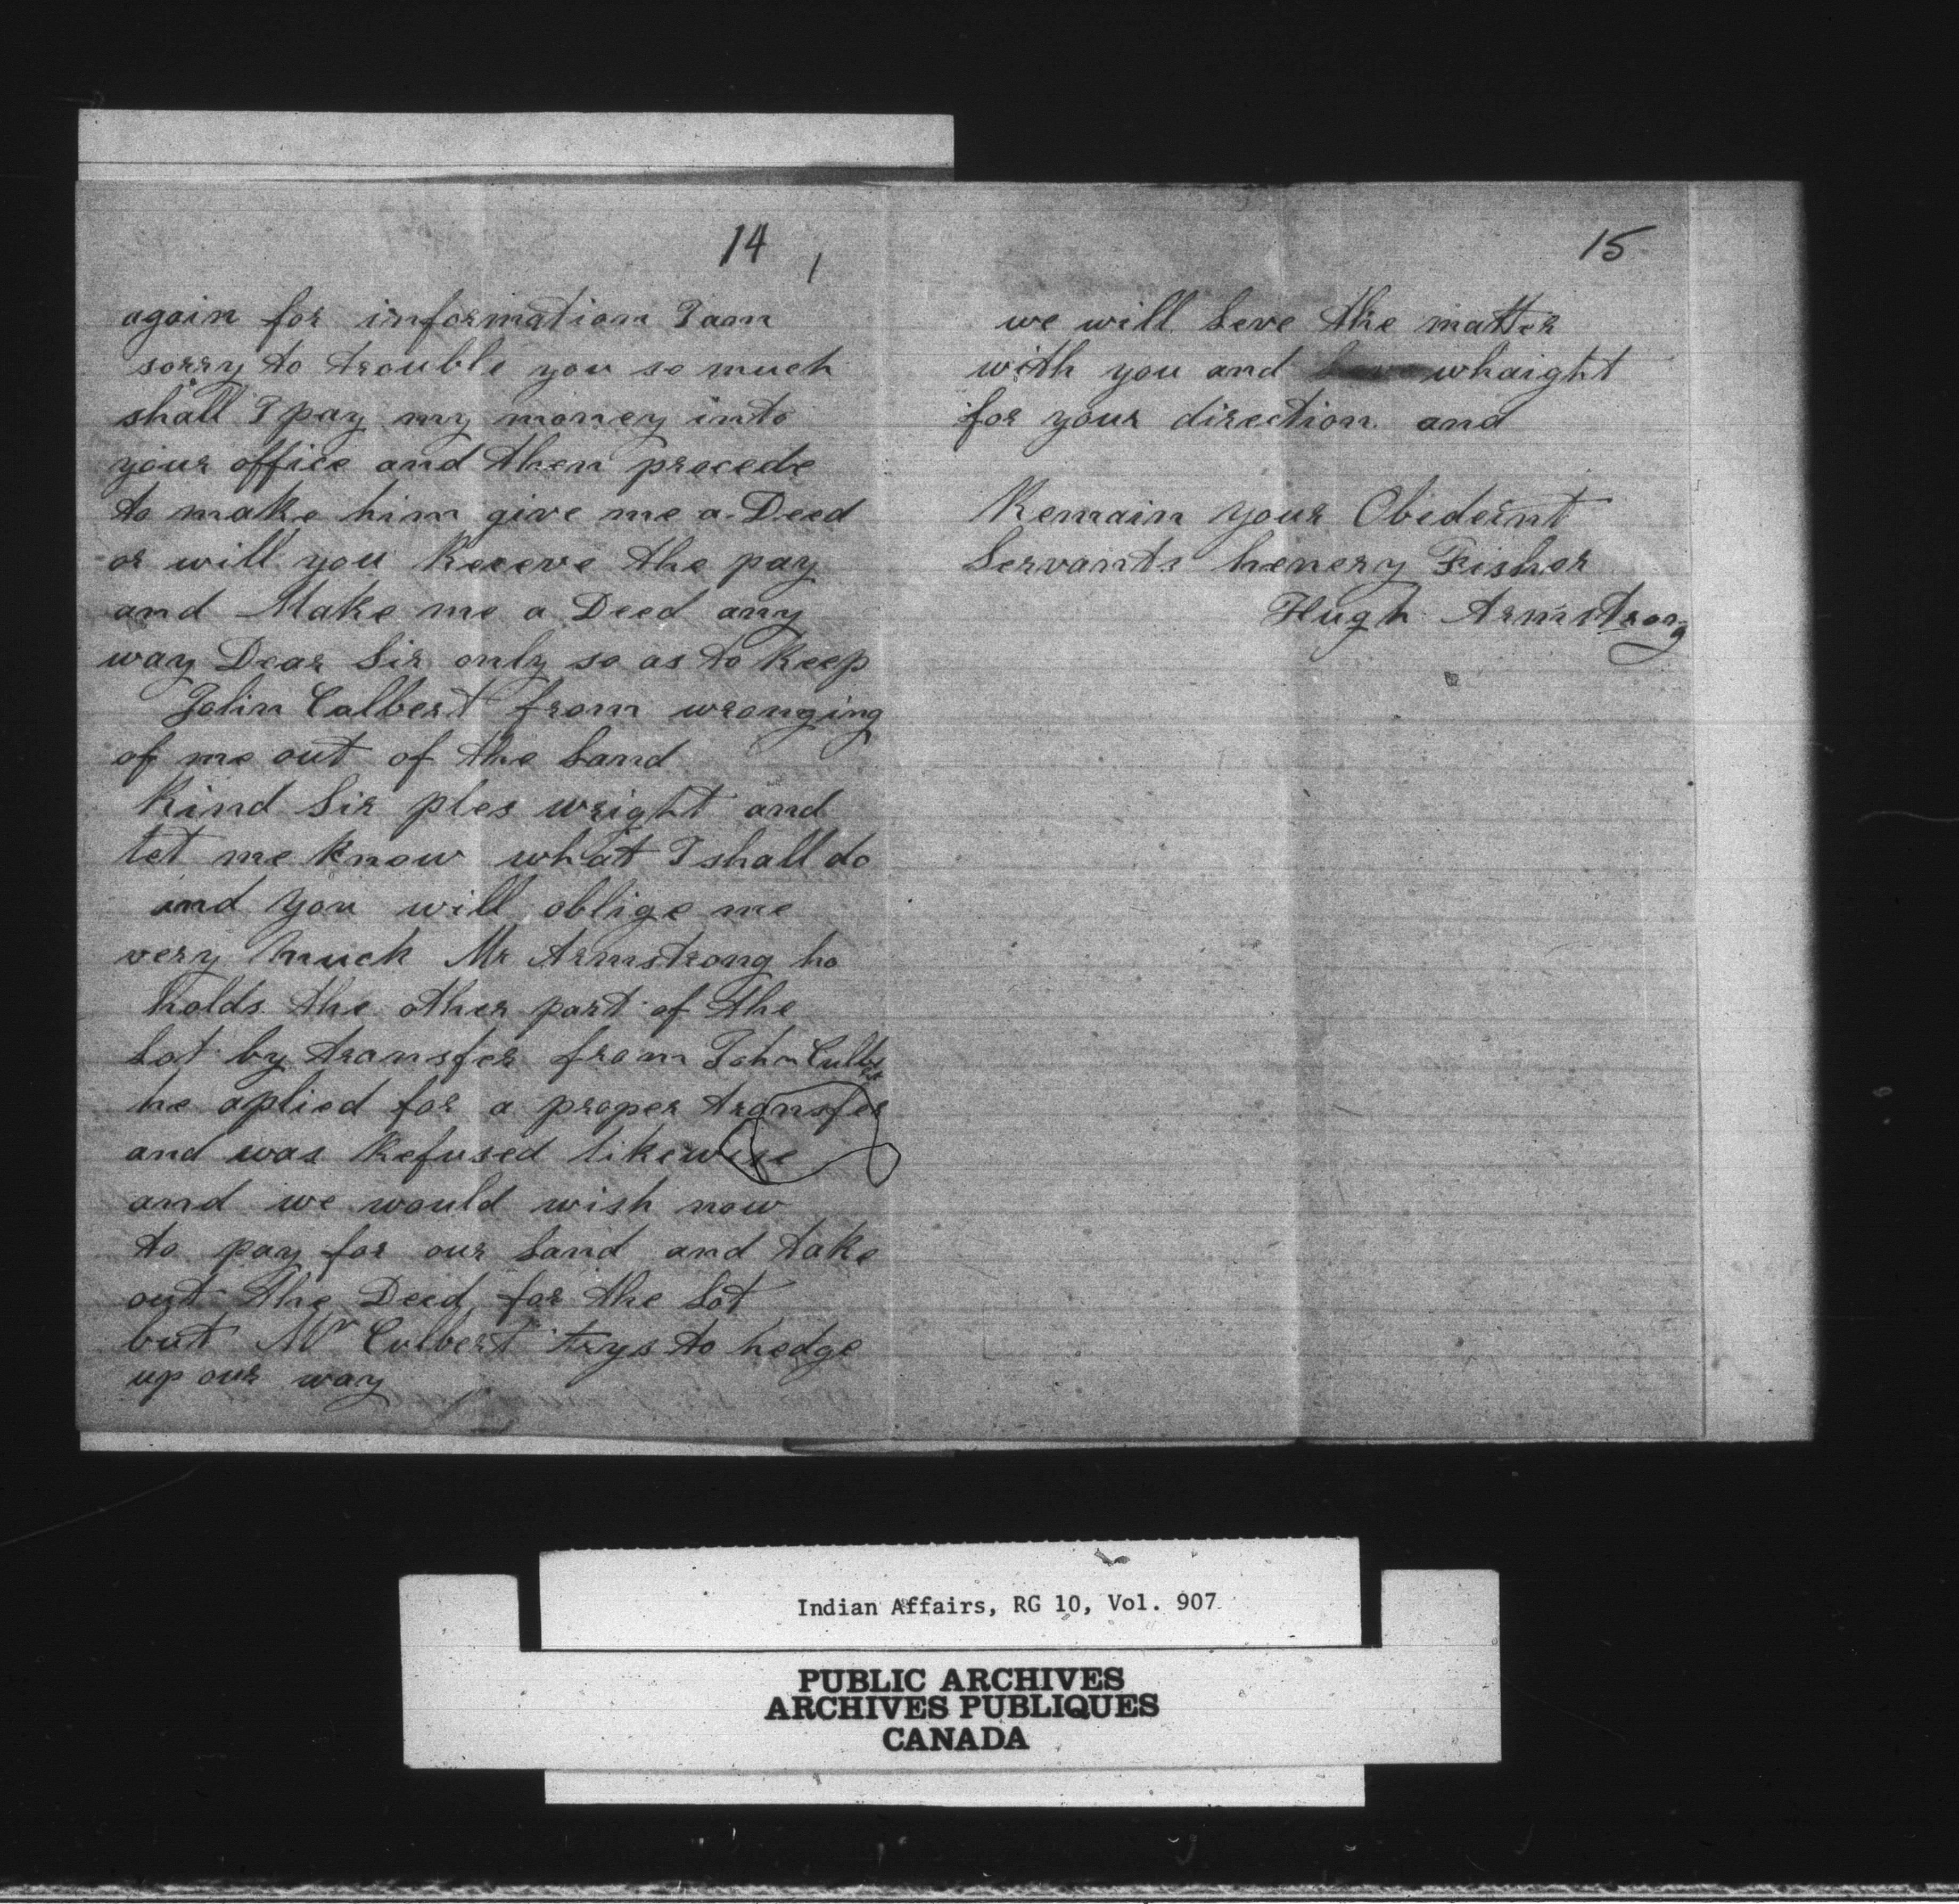 14
again for information I am
sorry to trouble you so much
shall I pay my money into
your office and then procede
to make him give me a Deed
or will you Receve the pay
and Make me a Deed any
way Dear Sir only so as to Keep
John Culbert from wronging
of me out of the Land
Kind Sir ples wright and
let me know what I shall do
and you will oblige me
very much Mr Armstrong ho
holds the other part of the
Lot by transfer from John Culbert
he aplied for a proper transfer
and was Refused likewise
and we would wish now
to pay for our Land and take
out the Deed for the Lot
but Mr Culbert trys to hedge
up our way
15
we will Leve the matter
with you and whaight
for your direction and
Remain your Obedeint
Servants henery Fisher
Hugh Armstrong
Indian Affairs, RG 10, Vol. 907
PUBLIC ARCHIVES
ARCHIVES PUBLIQUES
CANADA